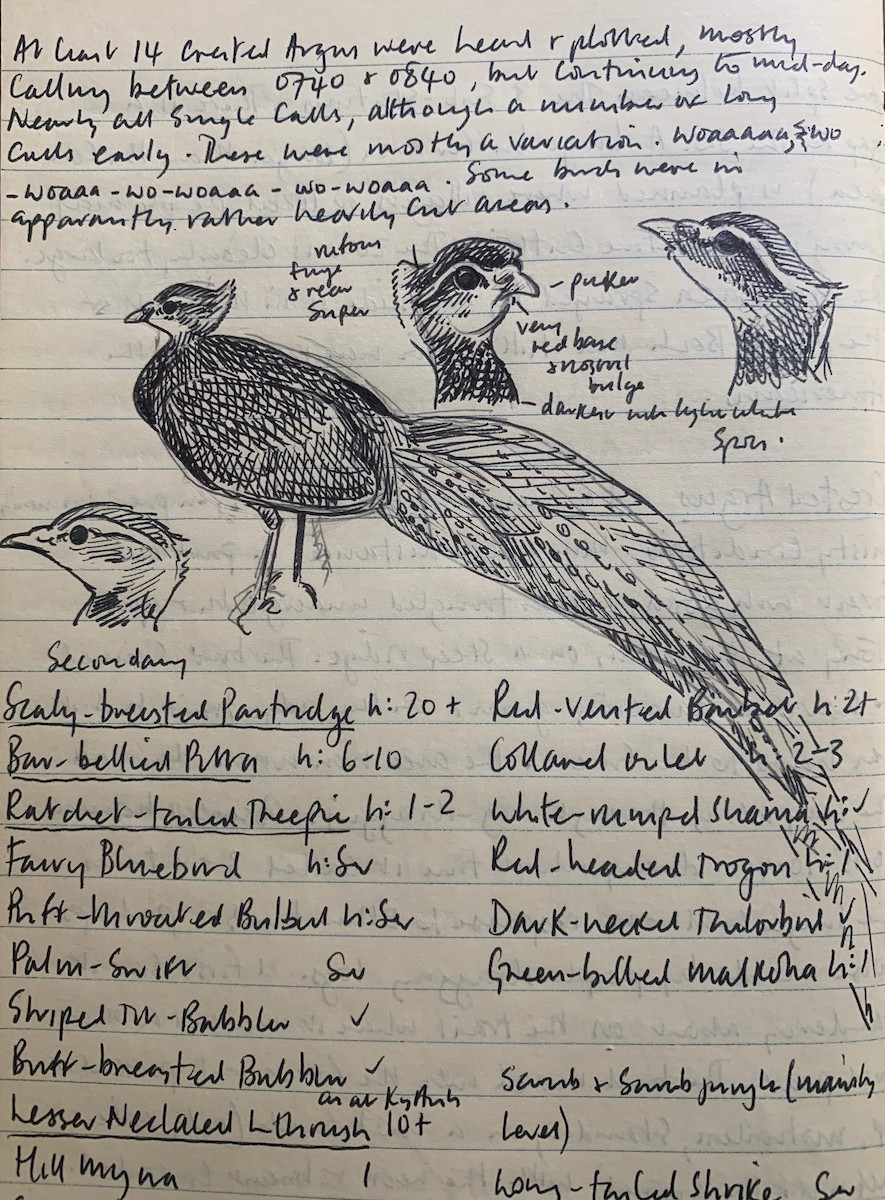 At least 14 Crested Argus were heard & plotted, mostly
calling between 0740 & 0840, but continuing to mid-day.
Nearly all single calls, although a number of long
calls early. These were mostly a variation. Woaaaaa, wo
- woaaa - wo - woaaa - wo - woaaa. Some birds were in
apparantly rather heavily cut areas.
rufous
& rear
super
pinker
very
red base
& nostril
bulge
darker with lighter white
spots.
Secondary
Scaly-breasted Partridge h: 20+
Bar-bellied Pitta h: 6-10
Ratchet-tailed Treepie h: 1-2
Fairy Bluebird h: Sv
Puff-throated Bulbul h: Sv
Palm-Swift Sv
Striped Tit-Babbler ✓
Buff-breasted Babbler ✓
Lesser Necklaced Lthrush 10+
Hill Myna 1
Red-vented Barbet h: 2+
Collared owlet h: 2-3
White-rumped Shama h: ✓
Red-headed Trogon h: 1
Dark-necked Tailorbird ✓
Green-billed Malkoha h: 1
Scrub & Scrub jungle (mainly
level)
Long-tailed Shrike Sv